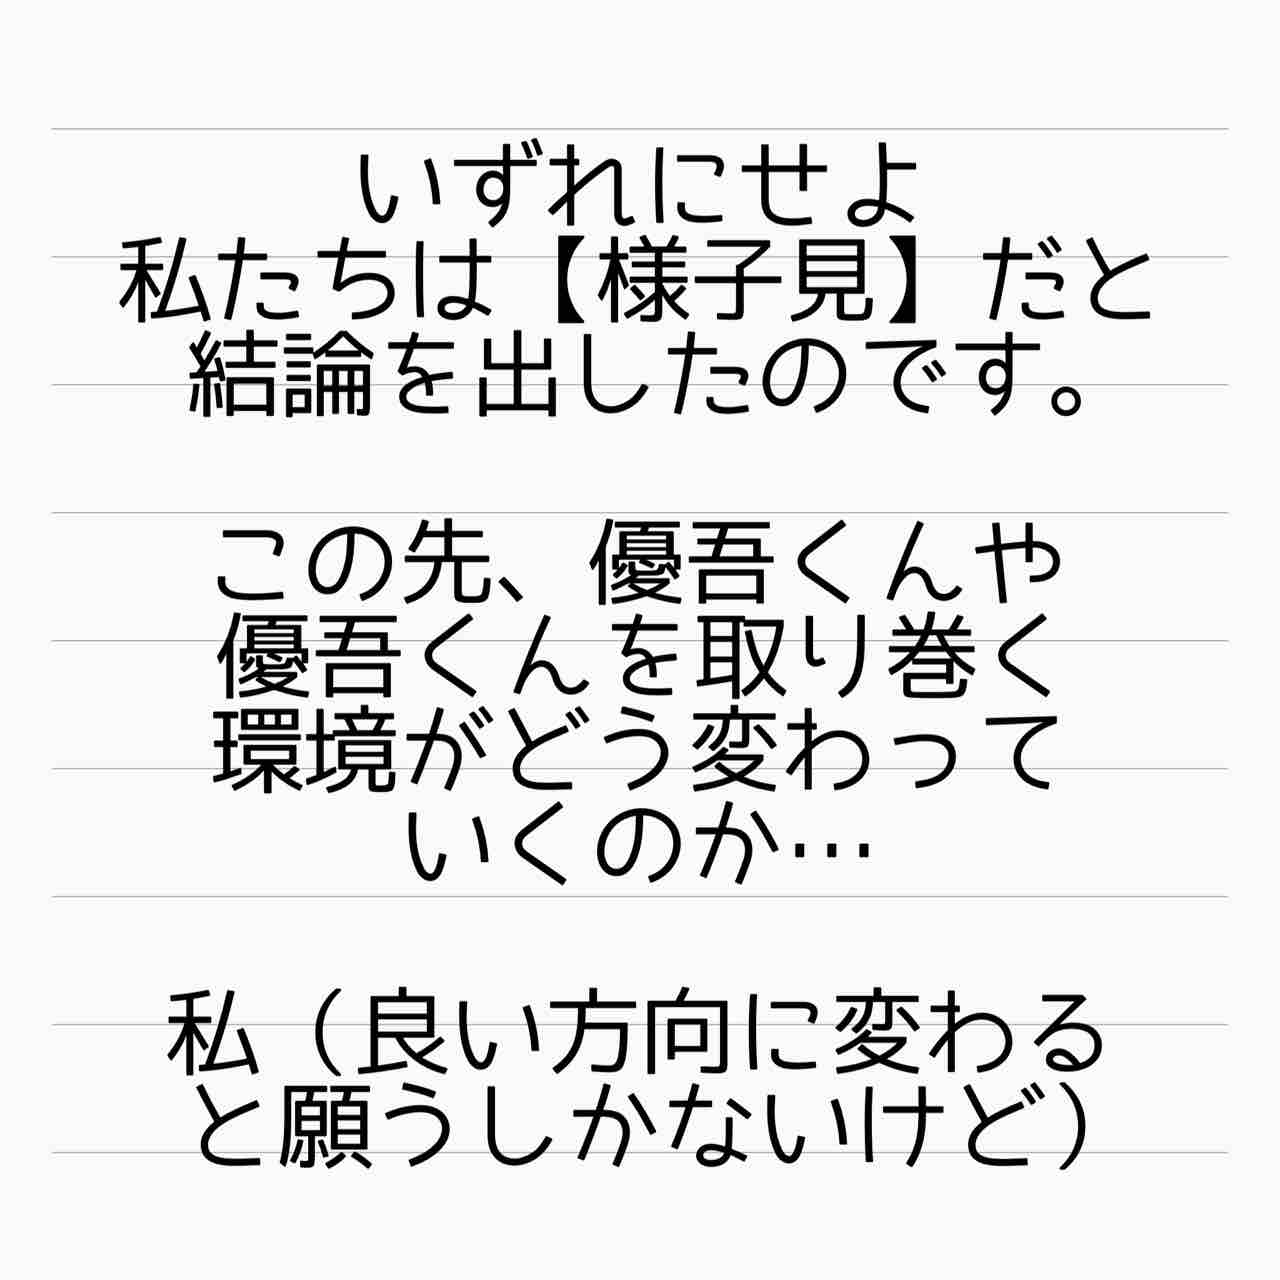 いずれにせよ
私たちは【様子見】だと
結論を出したのです。
この先、優吾くんや
優吾くんを取り巻く
環境がどう変わって
いくのか…
私（良い方向に変わる
と願うしかないけど）